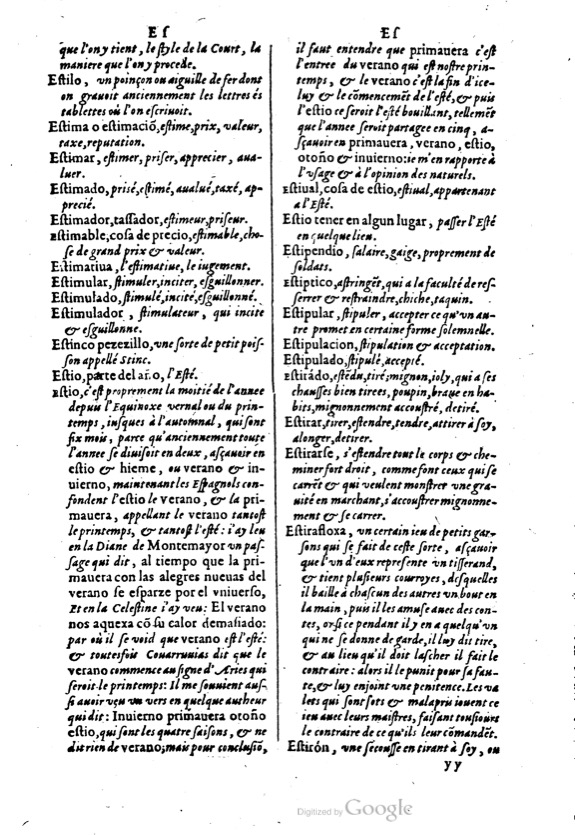 Es
que l'on y tient, le style de la Court, la
maniere que l'on y procede.
Estilo, vn poinçon ou aiguille de fer dont
on grauoit anciennement les lettres és
tablettes où l'on escriuoit.
Estima o estimació, estime, prix, valeur,
taxe, reputation.
Estimar, estimer, priser, apprecier, aua-
luer.
Estimado, prisé, estimé, aualué, taxé, ap-
precié.
Estimador, tassador, estimeur, priseur.
Estimable, cosa de precio, estimable, cho-
se de grand prix & valeur.
Estimatiua, l'estimatiue, le iugement.
Estimular, stimuler, inciter, esguillonner.
Estimulado, stimulé, incité, esguillonné.
Estimulador, stimulateur, qui incite
& esguillonne.
Estinco pezezillo, vne sorte de petit pois-
son appellé Stinc.
Estio, parte del año, l'Esté.
Estio, c'est proprement la moitié de l'annee
depuis l'Equinoxe vernal ou du prin-
temps, iusques à l'automnal, qui sont
six mois, parce qu'anciennement toute
l'annee se diuisoit en deux, asçauoir en
estio & hieme, ou verano & in-
uierno, maintenant les Espagnols con-
fondent l'estio le verano, & la pri-
mauera, appellant le verano tantost
le printemps, & tantost l'esté: i'ay leu
en la Diane de Montemayor vn pas-
sage qui dit, al tiempo que la pri-
mauera con las alegres nueuas del
verano se esparze por el vniuerso,
Et en la Celestine i'ay veu: El verano
nos aquexa cō su calor demasiado:
par où il se void que verano est l'esté:
& toutesfois Couarruuias dit que le
verano commence au signe d'Aries qui
seroit le printemps: Il me souuient aus-
si auoir veu vn vers en quelque autheur
qui dit: Inuierno primauera otoño
estio, qui sont les quatre saisons, & ne
dit rien de verano; mais pour conclusiō,
Es
il faut entendre que primauera c'est
l'entree du verano qui est nostre prin-
temps, & le verano c'est la fin d'ice-
luy & le cōmencemēt de l'esté, & puis
l'estio ce seroit l'esté bouillant, tellemēt
que l'annee seroit partagee en cinq, a-
sçauoir en primauera, verano, estio,
otoño & inuierno: ie m'en rapporte à
l'vsage & à l'opinion des naturels.
Estiual, cosa de estio, estiual, appartenant
a l'Esté.
Estio tener en algun lugar, passer l'Esté
en quelque lieu.
Estipendio, salaire, gaige, proprement de
soldats.
Estiptico, astringēt, qui a la faculté de res-
serrer & restraindre, chiche, taquin.
Estipular, stipuler, accepter ce qu'vn au-
tre promet en certaine forme solemnelle.
Estipulacion, stipulation & acceptation.
Estipulado, stipulé, accepté.
Estirádo, estēdu, tiré; mignon, ioly, qui a ses
chausses bien tirees, poupin, braue en ha-
bits, mignonnement accoustré, detiré.
Estirar, tirer, estendre, tendre, attirer à soy,
alonger, detirer.
Estirarse, s'estendre tout le corps & che-
miner fort droit, comme font ceux qui se
carrēt & qui veulent monstrer vne gra-
uité en marchant, s'accoustrer mignonne-
ment & se carrer.
Estiraflоxa, vn certain ieu de petits gar-
sons qui se fait de ceste sorte, asçauoir
que l'vn d'eux represente vn tisserand,
& tient plusieurs courroyes, desquelles
il baille à chascun des autres vn bout en
la main, puis il les amuse auec des con-
tes, or si ce pendant il y en a quelqu'vn
qui ne se donne de garde, il luy dit tire,
& au lieu qu'il doit lascher il fait le
contraire: alors il le punit pour sa fau-
te, & luy enjoint vne penitence. Les va
lets qui sont sots & malapris iouent ce
ieu auec leurs maistres, faisant tousiours
le contraire de ce qu'ils leur cōmandēt.
Estirón, vne secousse en tirant à soy, ou
yy
Digitized by Google